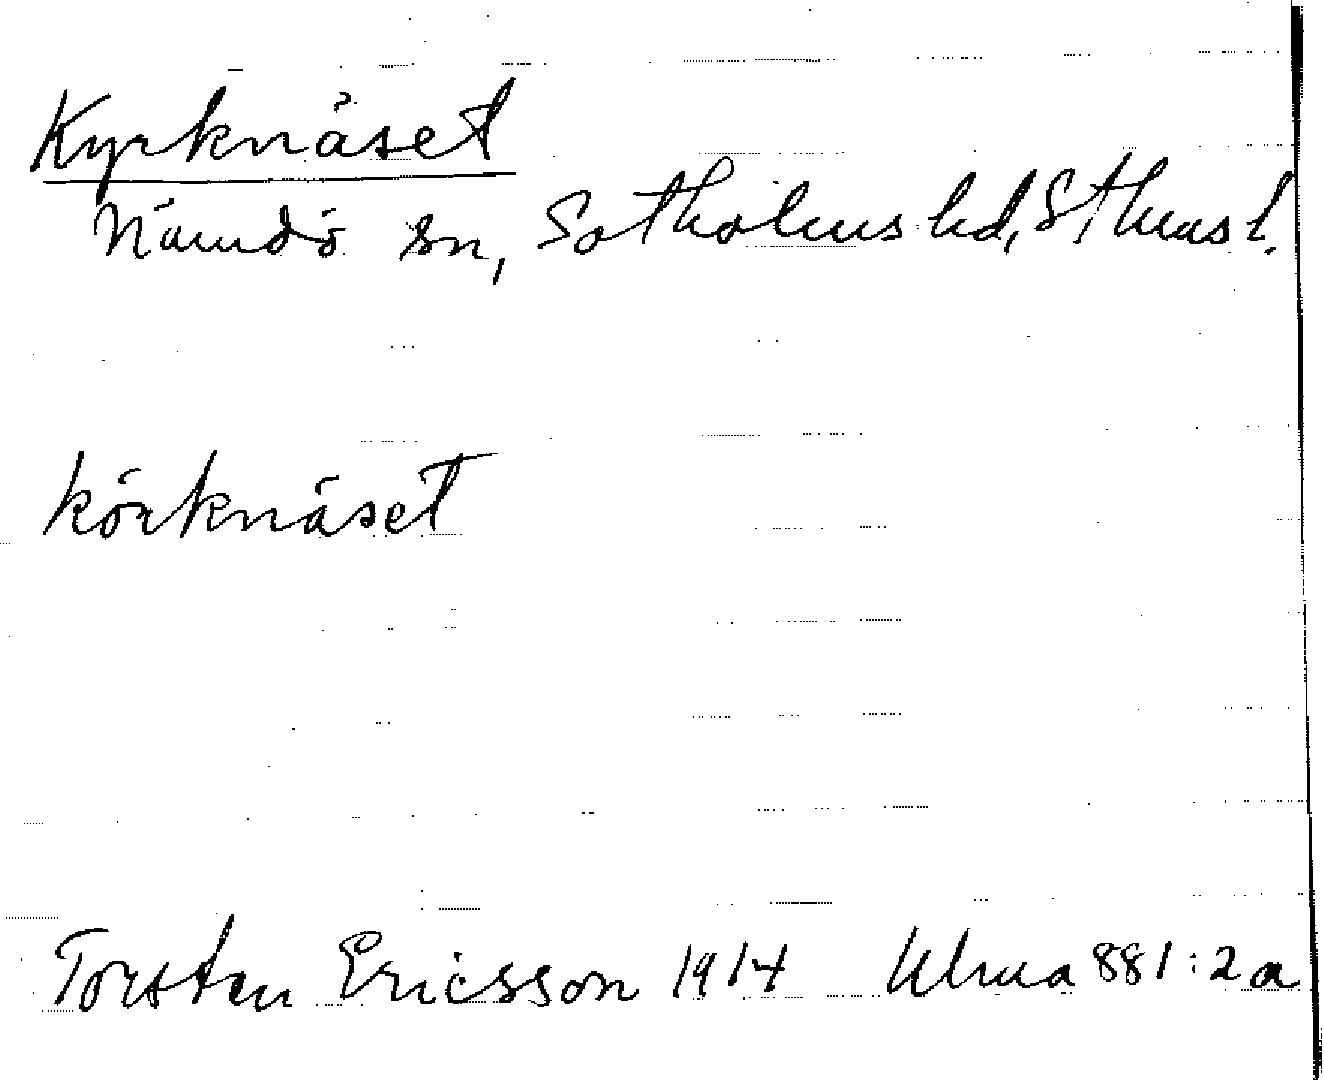 Kyrknäset
Nämdö sn, Sotholms hd, Sthms l.
körknäset
Torsten Ericsson 1914 Ulma 881:2a